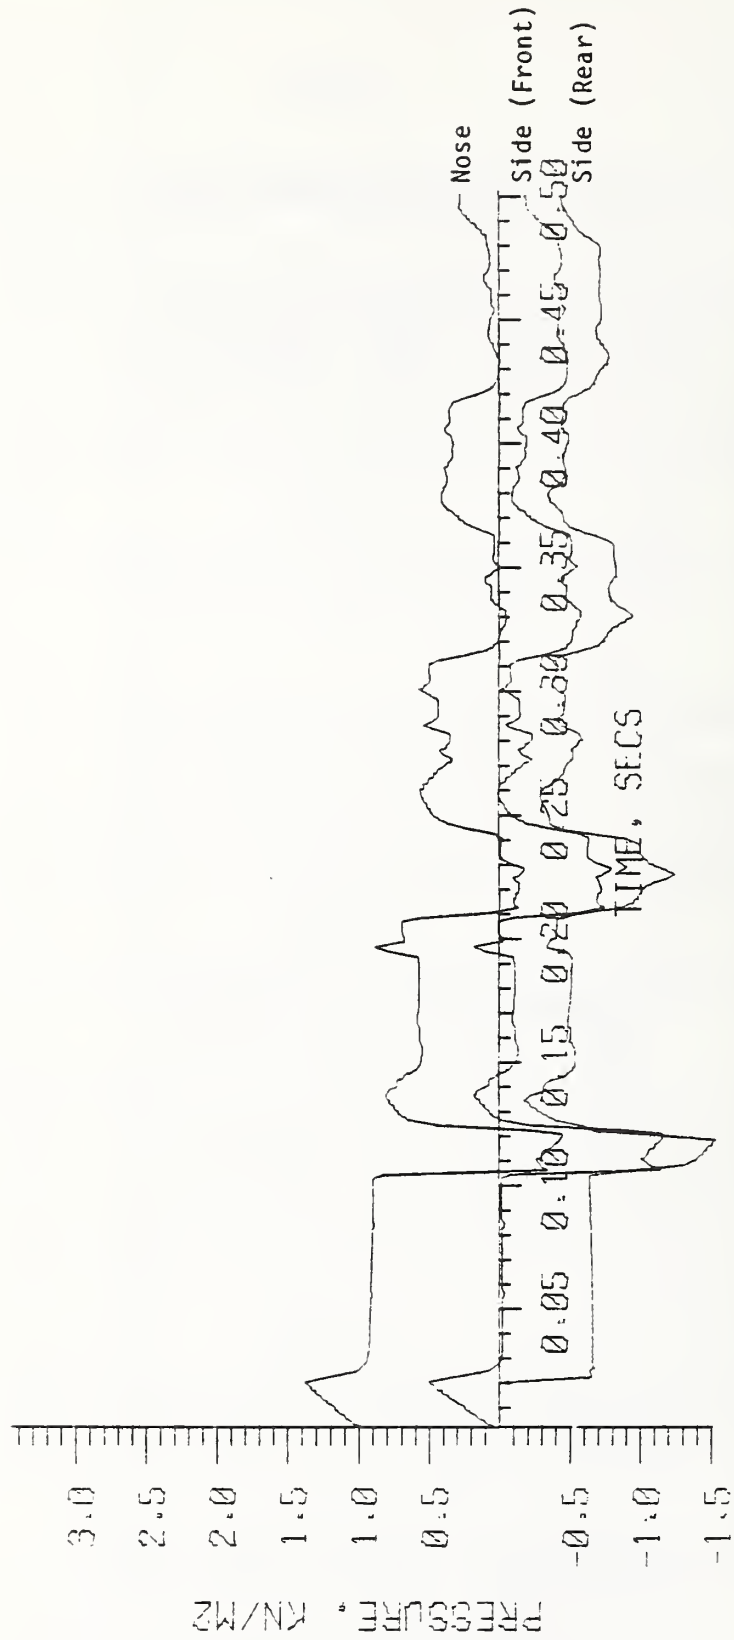 PRESSURE, KN/M2
3.0
2.5
2.0
1.5
1.0
0.5
-0.5
-1.0
-1.5
0.05
0.10
0.15
0.20
0.25
0.30
0.35
0.40
0.45
0.50
TIME, SECS
Nose
Side (Front)
Side (Rear)